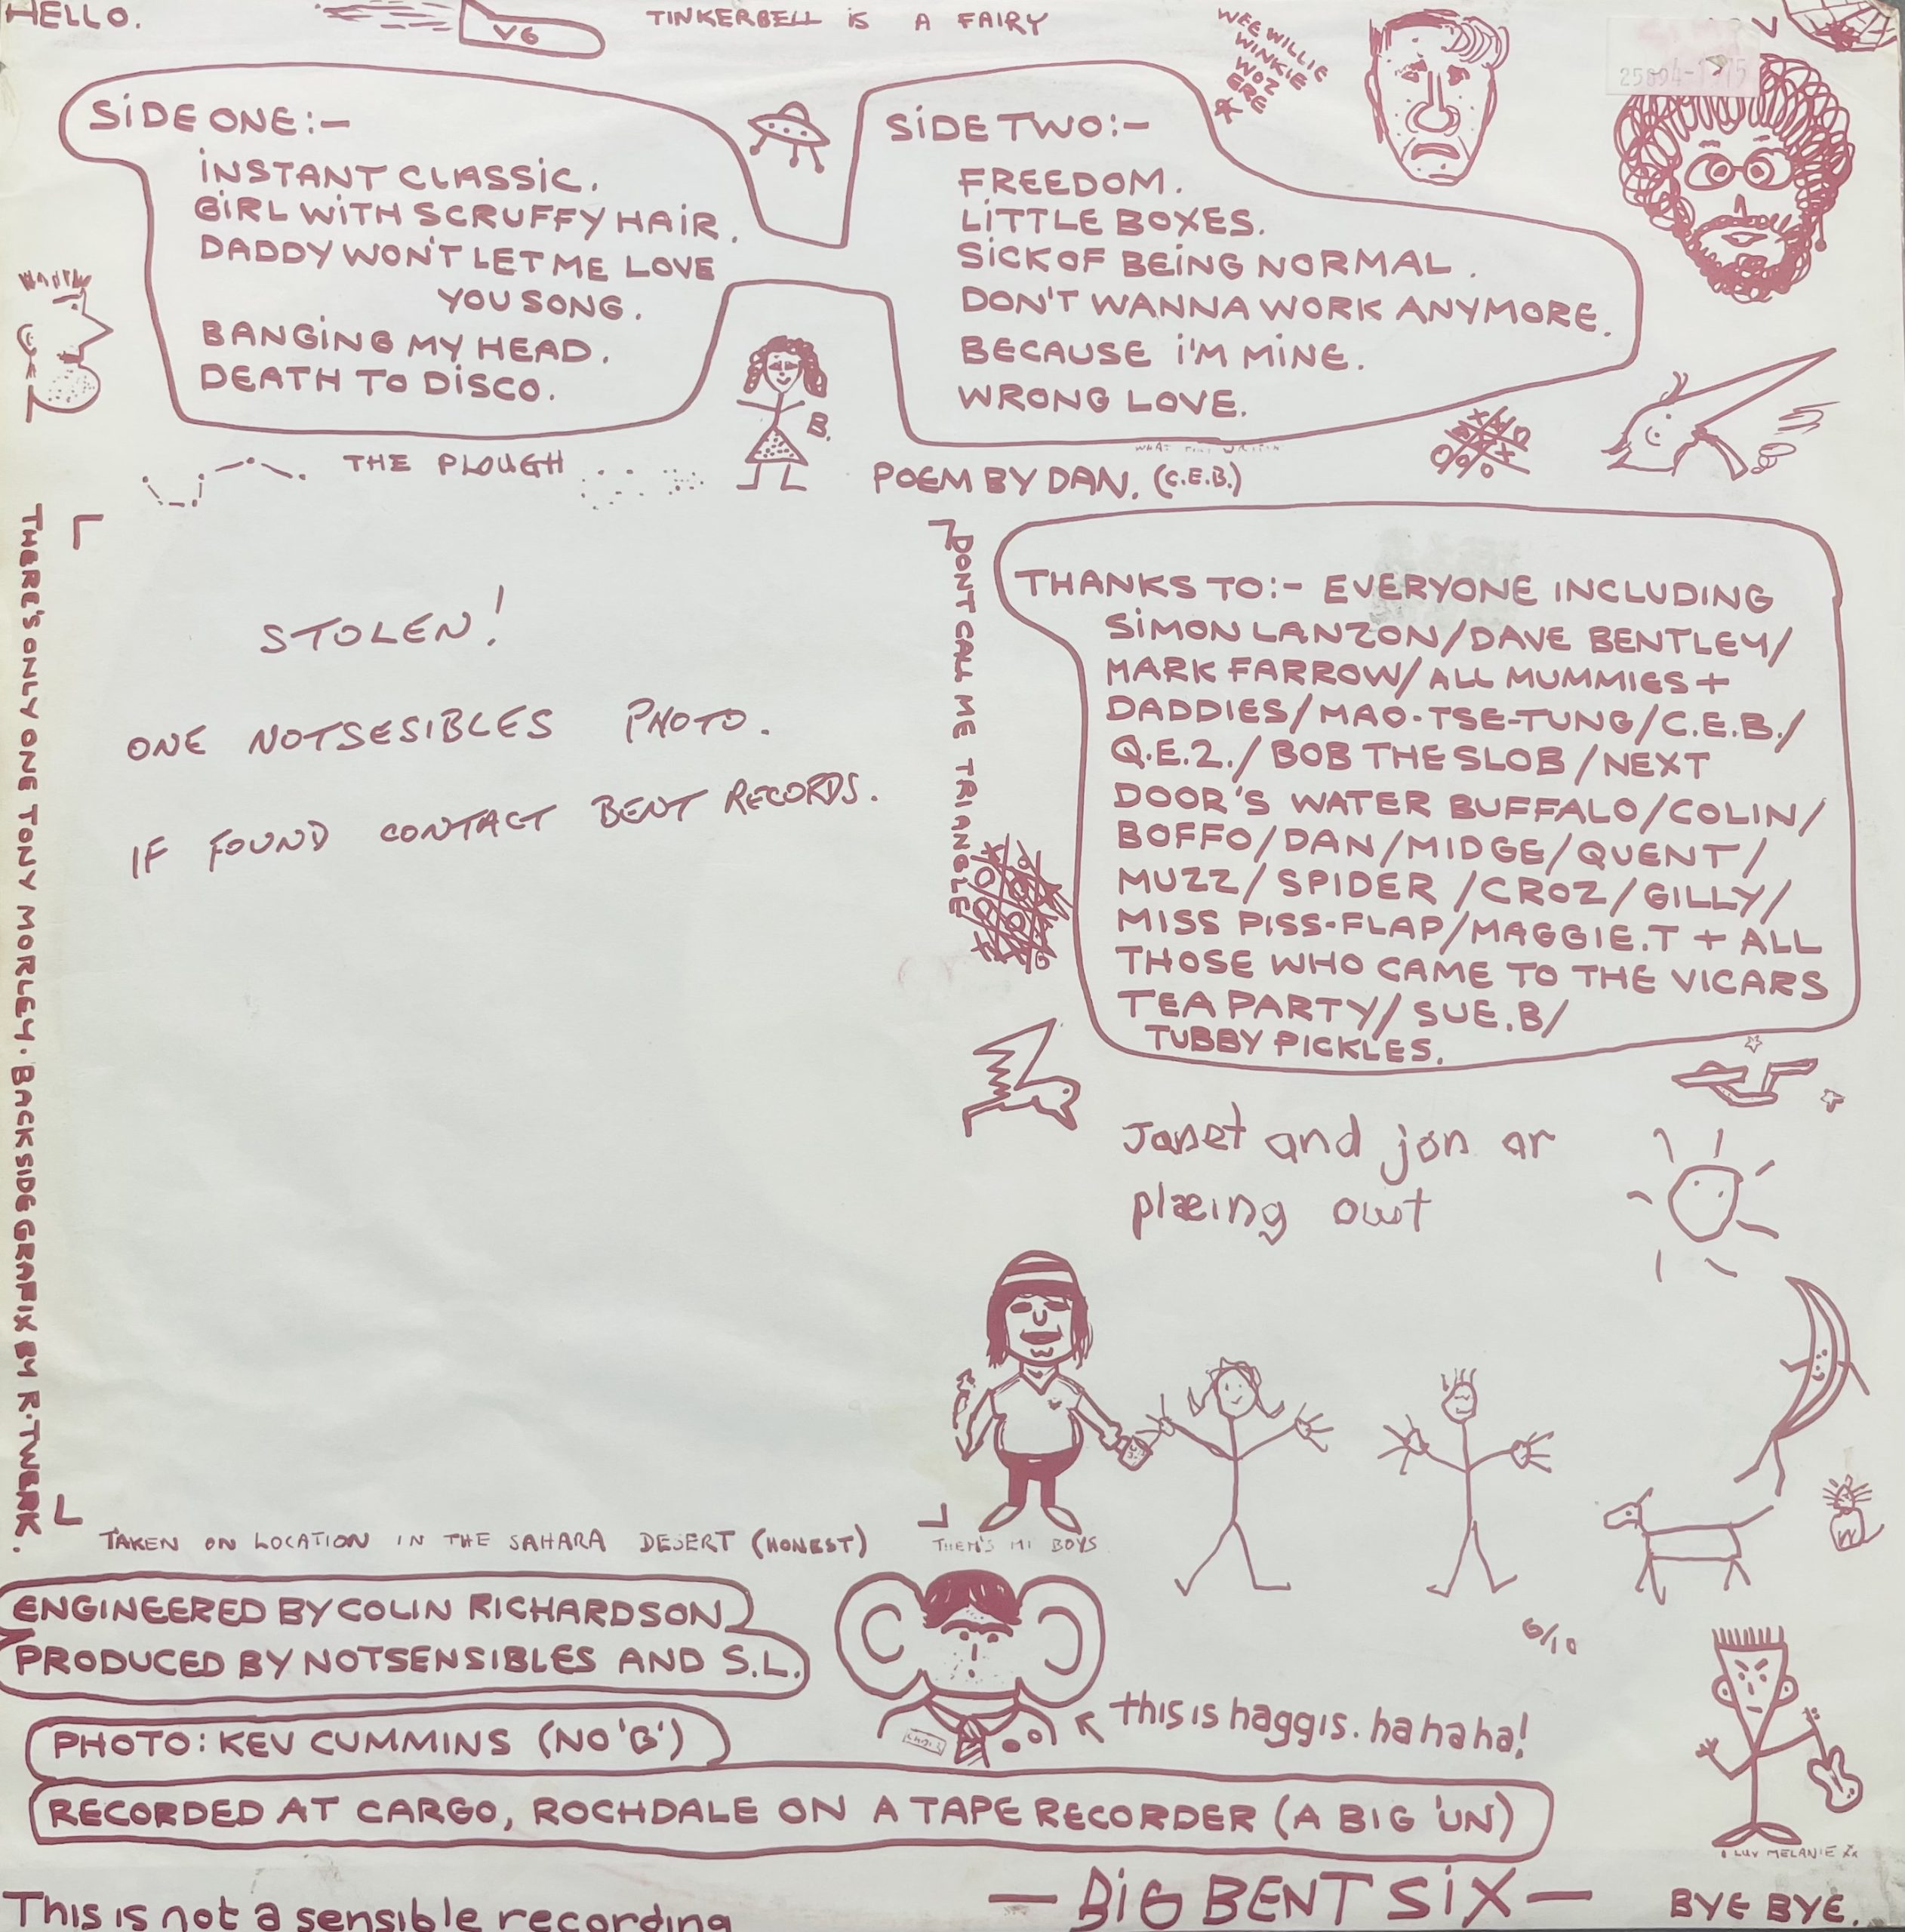 HELLO.
V6
TINKERBELL IS A FAIRY
WEE WILLIE
WINKIE
WOZ
ERE
SIDE ONE:-
INSTANT CLASSIC.
GIRL WITH SCRUFFY HAIR.
DADDY WON'T LET ME LOVE
YOU SONG.
BANGING MY HEAD.
DEATH TO DISCO.
SIDE TWO:-
FREEDOM.
LITTLE BOXES.
SICK OF BEING NORMAL.
DON'T WANNA WORK ANYMORE.
BECAUSE I'M MINE.
WRONG LOVE.
B.
THE PLOUGH
POEM BY DAN. (C.E.B.)
THERE'S ONLY ONE TONY MORLEY. BACK SIDE GRAFIX BY R.TWERK.
STOLEN!
ONE NOTSESIBLES PHOTO.
IF FOUND CONTACT BENT RECORDS.
DON'T CALL ME TRIANGLE
THANKS TO:- EVERYONE INCLUDING
SIMON LANZON/DAVE BENTLEY/
MARK FARROW/ALL MUMMIES +
DADDIES/MAO-TSE-TUNG/C.E.B./
Q.E.2./BOB THE SLOB/NEXT
DOOR'S WATER BUFFALO/COLIN/
BOFFO/DAN/MIDGE/QUENT/
MUZZ/SPIDER/CROZ/GILLY/
MISS PISS-FLAP/MAGGIE.T + ALL
THOSE WHO CAME TO THE VICARS
TEA PARTY/SUE.B/
TUBBY PICKLES.
Janet and jon ar
plæing owt
TAKEN ON LOCATION IN THE SAHARA DESERT (HONEST)
THEM'S MI BOYS
6/10
ENGINEERED BY COLIN RICHARDSON
PRODUCED BY NOTSENSIBLES AND S.L.
PHOTO: KEV CUMMINS (NO 'B')
this is haggis. ha ha ha!
RECORDED AT CARGO, ROCHDALE ON A TAPE RECORDER (A BIG 'UN)
I LUV MELANIE xx
This is not a sensible recording
— BIG BENT SIX —
BYE BYE.